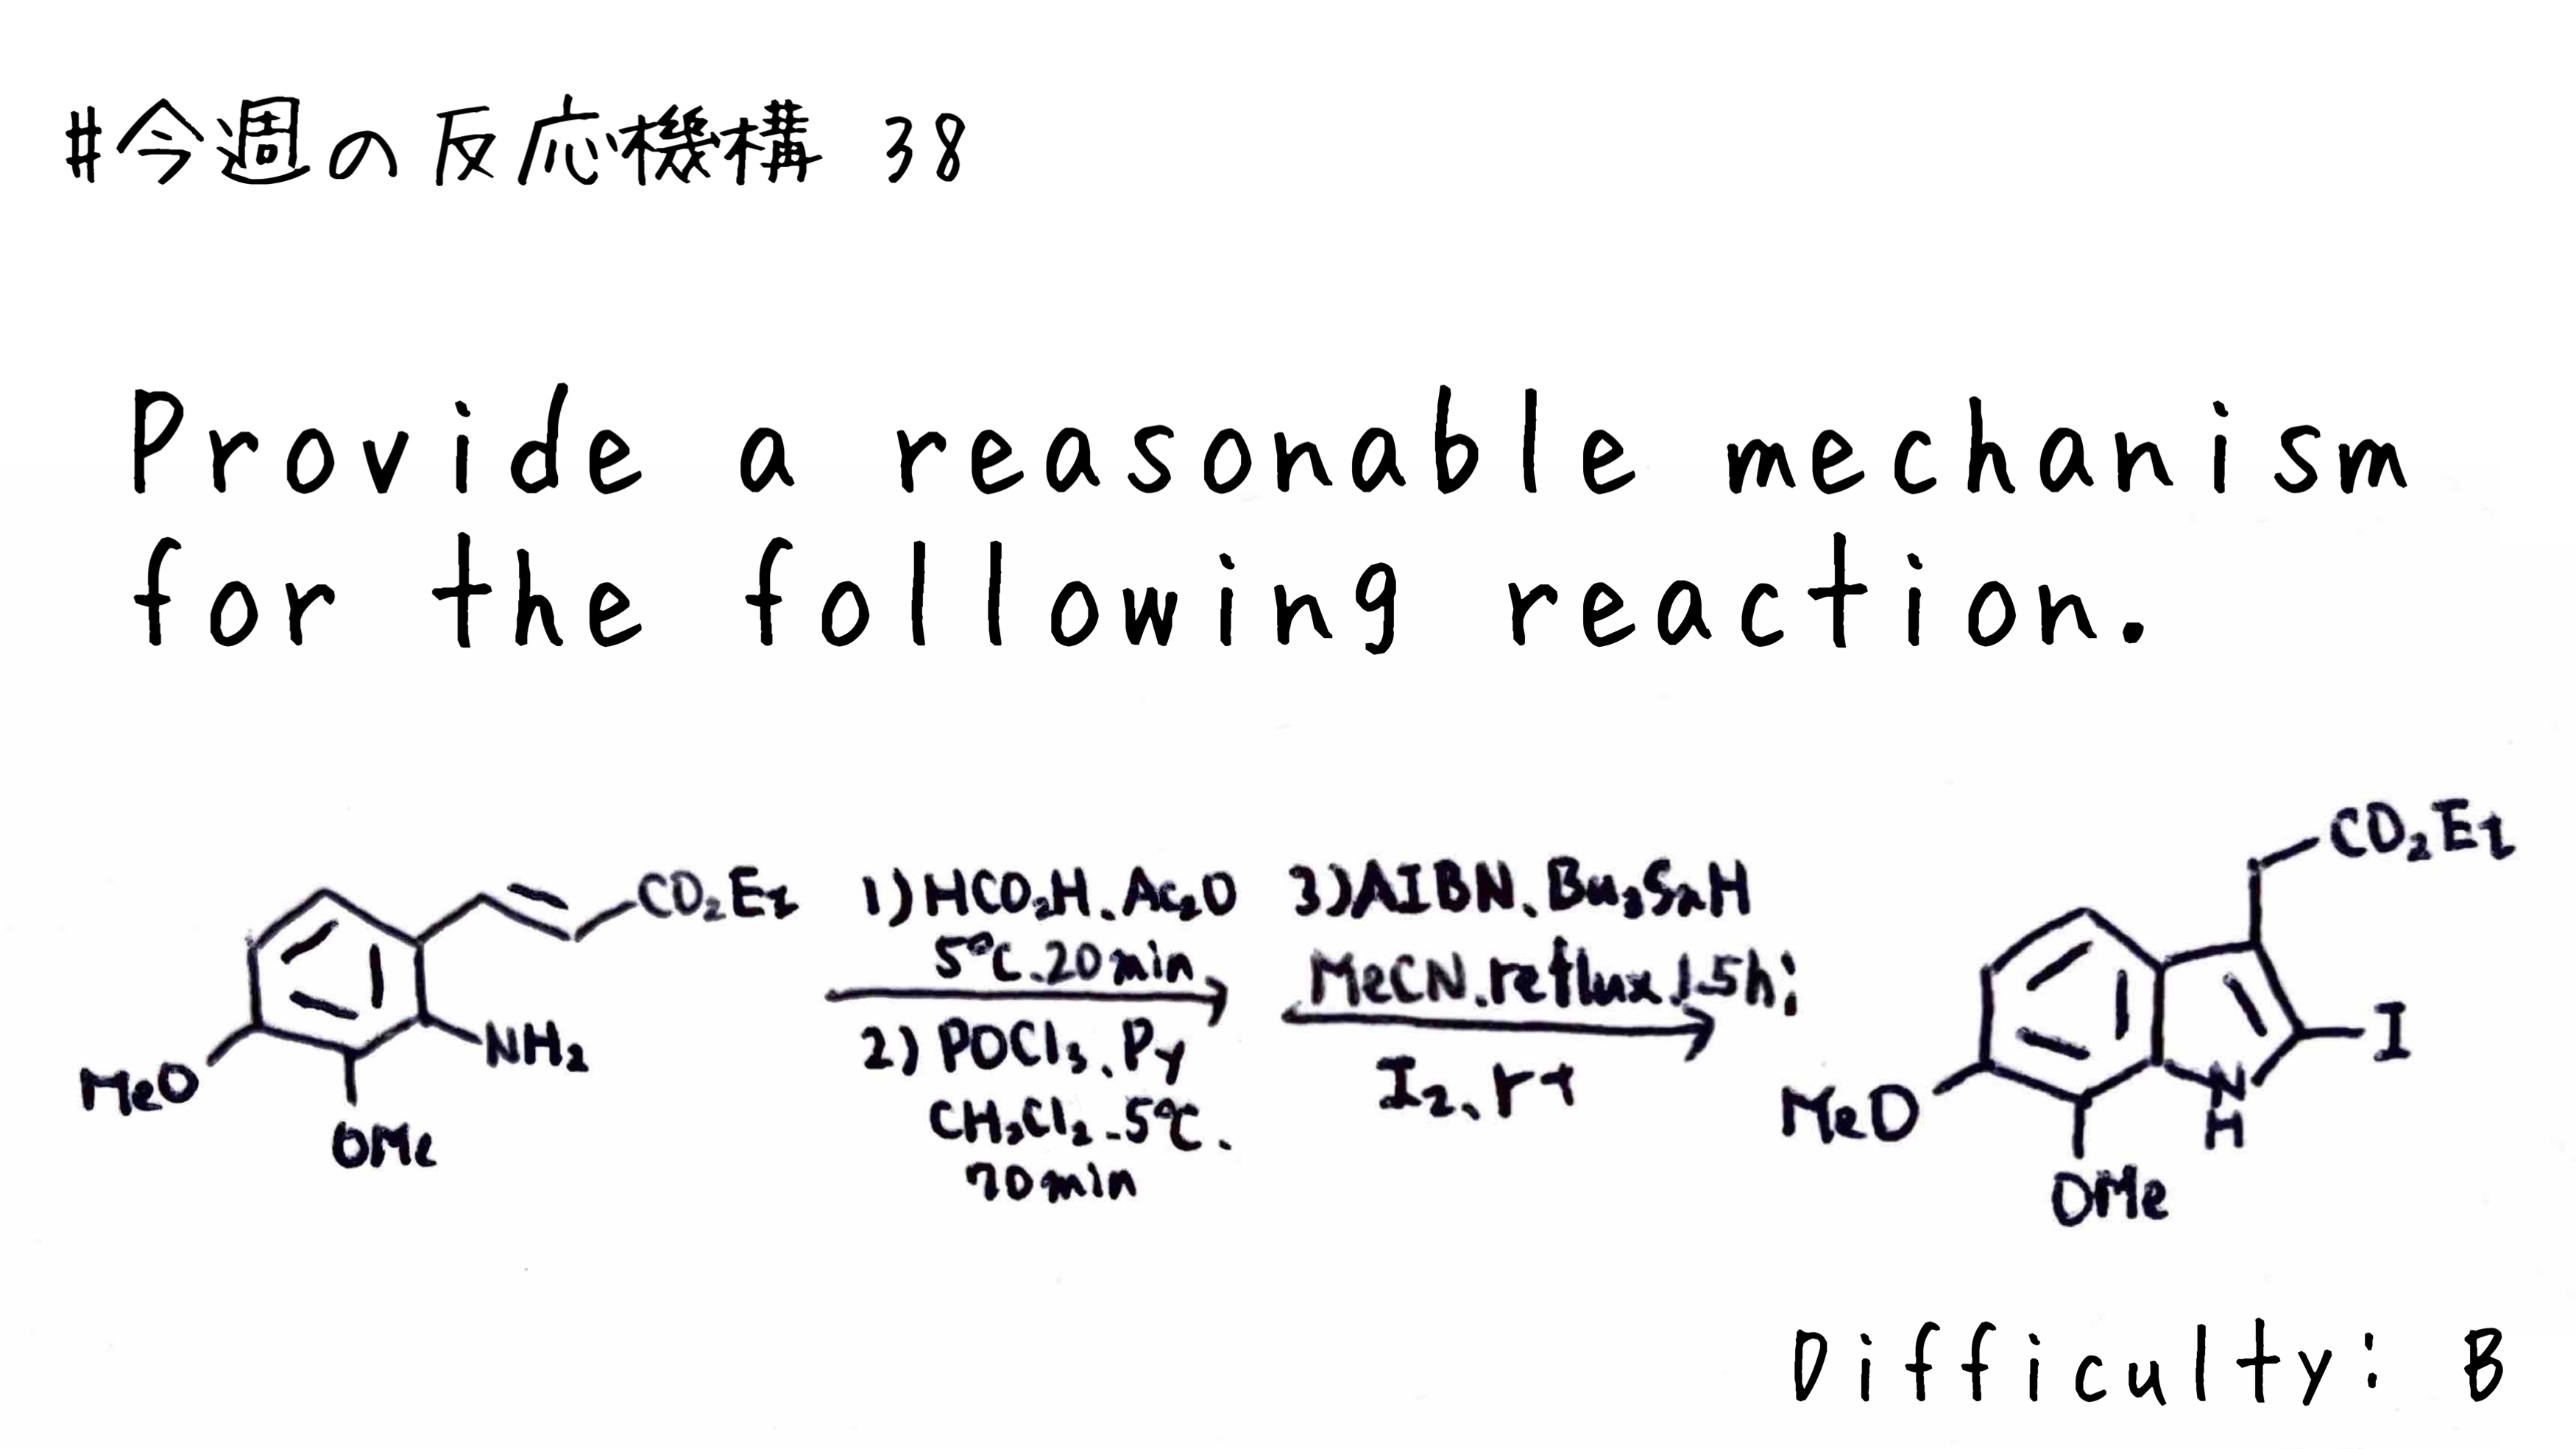 #今週の反応機構 38
Provide a reasonable mechanism
for the following reaction.
CO₂Et
NH₂
MeO
OMe
1) HCO₂H、Ac₂O
5℃、20min
2) POCl₃、Py
CH₂Cl₂、5℃、
70min
3) AIBN、Bu₃SnH
MeCN、reflux、1.5h;
I₂、rt
CO₂Et
I
N
H
MeO
OMe
Difficulty: B